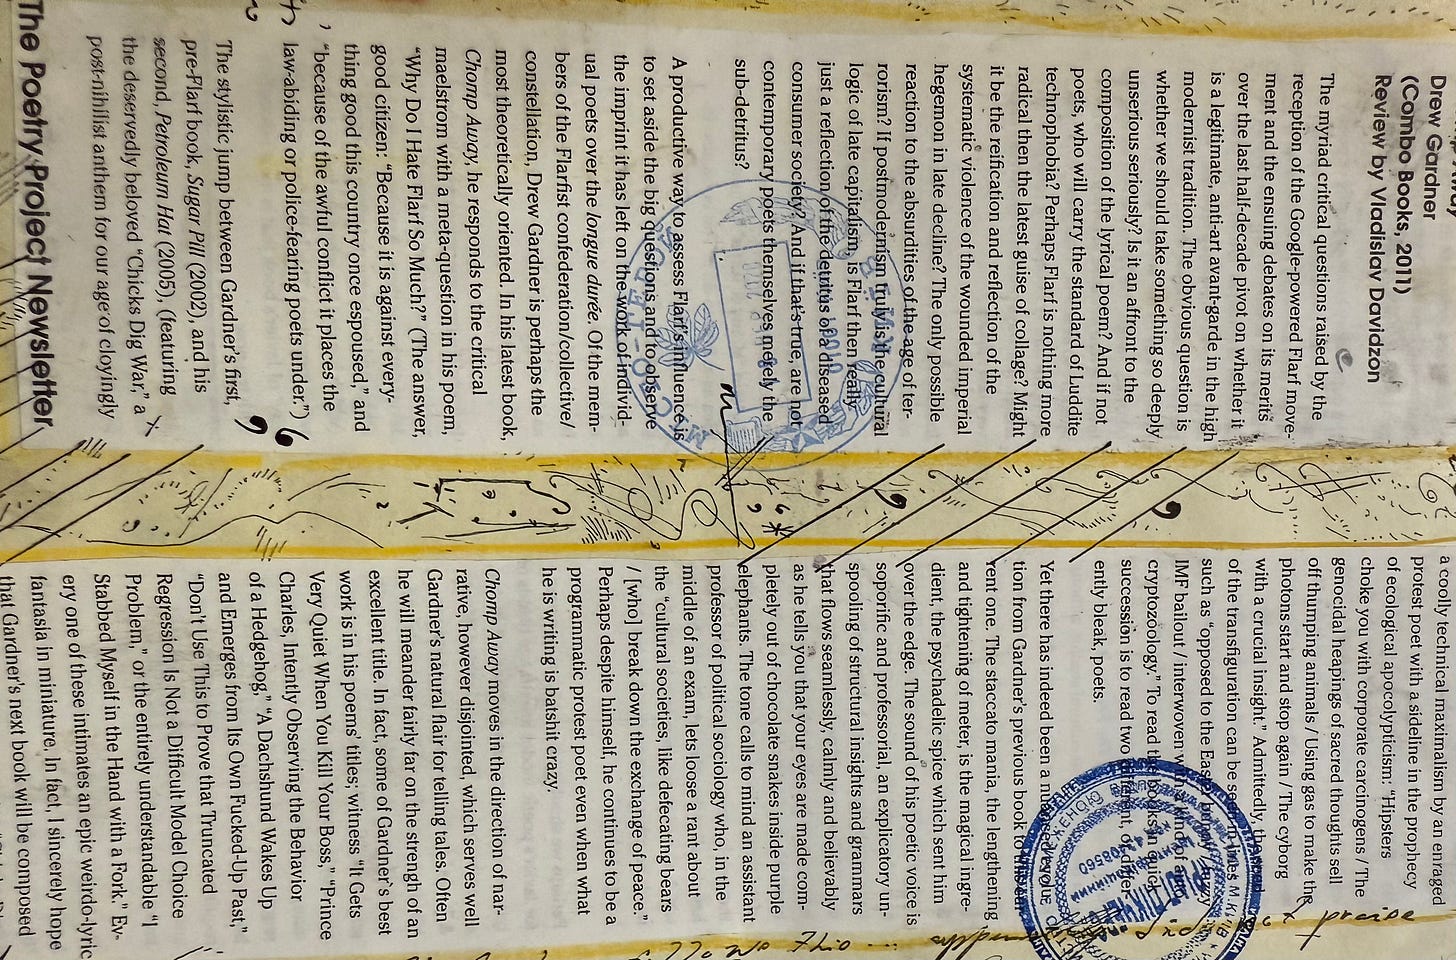 Drew Gardner
(Combo Books, 2011)
Review by Vladislav Davidzon
The myriad critical questions raised by the
reception of the Google-powered Flarf move-
ment and the ensuing debates on its merits
over the last half-decade pivot on whether it
is a legitimate, anti-art avant-garde in the high
modernist tradition. The obvious question is
whether we should take something so deeply
unserious seriously? Is it an affront to the
composition of the lyrical poem? And if not
poets, who will carry the standard of Luddite
technophobia? Perhaps Flarf is nothing more
radical then the latest guise of collage? Might
it be the reification and reflection of the
systematic violence of the wounded imperial
hegemon in late decline? The only possible
reaction to the absurdities of the age of ter-
rorism? If postmodernism truly is the cultural
logic of late capitalism, is Flarf then really
just a reflection of the detritus of a diseased
consumer society? And if that's true, are not
contemporary poets themselves merely the
sub-detritus?
A productive way to assess Flarf's influence is
to set aside the big questions and to observe
the imprint it has left on the work of individ-
ual poets over the longue durée. Of the mem-
bers of the Flarfist confederation/collective/
constellation, Drew Gardner is perhaps the
most theoretically oriented. In his latest book,
Chomp Away, he responds to the critical
maelstrom with a meta-question in his poem,
"Why Do I Hate Flarf So Much?" (The answer,
good citizen: "Because it is against every-
thing good this country once espoused," and
"because of the awful conflict it places the
law-abiding or police-fearing poets under.")
The stylistic jump between Gardner's first,
pre-Flarf book, Sugar Pill (2002), and his
second, Petroleum Hat (2005), (featuring
the deservedly beloved "Chicks Dig War," a
post-nihilist anthem for our age of cloyingly
The Poetry Project Newsletter
a coolly technical maximalism by an enraged
protest poet with a sideline in the prophecy
of ecological apocalypticism: "Hipsters
choke you with corporate carcinogens / The
genocidal heapings of sacred thoughts sell
off thumping animals / Using gas to make the
photons start and stop again / The cyborg
with a crucial insight." Admittedly, th
of the transfiguration can be se
such as "opposed to the Easte
IMF bailout / interwoven w
cryptozoology." To read th
succession is to read two
ently bleak, poets.
Yet there has indeed been a
tion from Gardner's previous book to
rent one. The staccato mania, the lengthening
and tightening of meter, is the magical ingre-
dient, the psychadelic spice which sent him
over the edge. The sound of his poetic voice is
soporific and professorial, an explicatory un-
spooling of structural insights and grammars
that flows seamlessly, calmly and believably
as he tells you that your eyes are made com-
pletely out of chocolate snakes inside purple
elephants. The tone calls to mind an assistant
professor of political sociology who, in the
middle of an exam, lets loose a rant about
the "cultural societies, like defecating bears
/ [who] break down the exchange of peace."
Perhaps despite himself, he continues to be a
programmatic protest poet even when what
he is writing is batshit crazy.
Chomp Away moves in the direction of nar-
rative, however disjointed, which serves well
Gardner's natural flair for telling tales. Often
he will meander fairly far on the strength of an
excellent title. In fact, some of Gardner's best
work is in his poems' titles; witness "It Gets
Very Quiet When You Kill Your Boss," "Prince
Charles, Intently Observing the Behavior
of a Hedgehog," "A Dachshund Wakes Up
and Emerges from Its Own Fucked-Up Past,"
"Don't Use This to Prove that Truncated
Regression Is Not a Difficult Model Choice
Problem," or the entirely understandable "I
Stabbed Myself in the Hand with a Fork." Ev-
ery one of these intimates an epic weirdo-lyric
fantasia in miniature. In fact, I sincerely hope
that Gardner's next book will be composed
praise